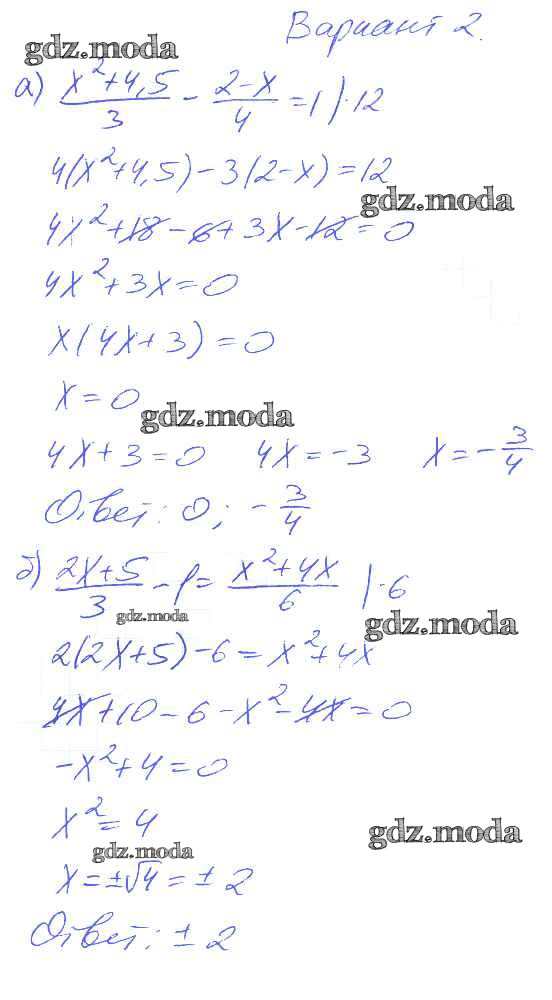 Вариант 2.
gdz.moda
а) (x²+4,5)/3 - (2-x)/4 = 1 |·12
4(x²+4,5)-3(2-x)=12
gdz.moda
4x²+18-6+3x-12=0
4x²+3x=0
x(4x+3)=0
x=0
gdz.moda
4x+3=0 4x=-3 x=-3/4
Ответ: 0; -3/4
б) (2x+5)/3 - 1 = (x²+4x)/6 |·6
gdz.moda
gdz.moda
2(2x+5)-6=x²+4x
4x+10-6-x²-4x=0
-x²+4=0
x²=4
gdz.moda
gdz.moda
x=±√4=±2
Ответ: ±2